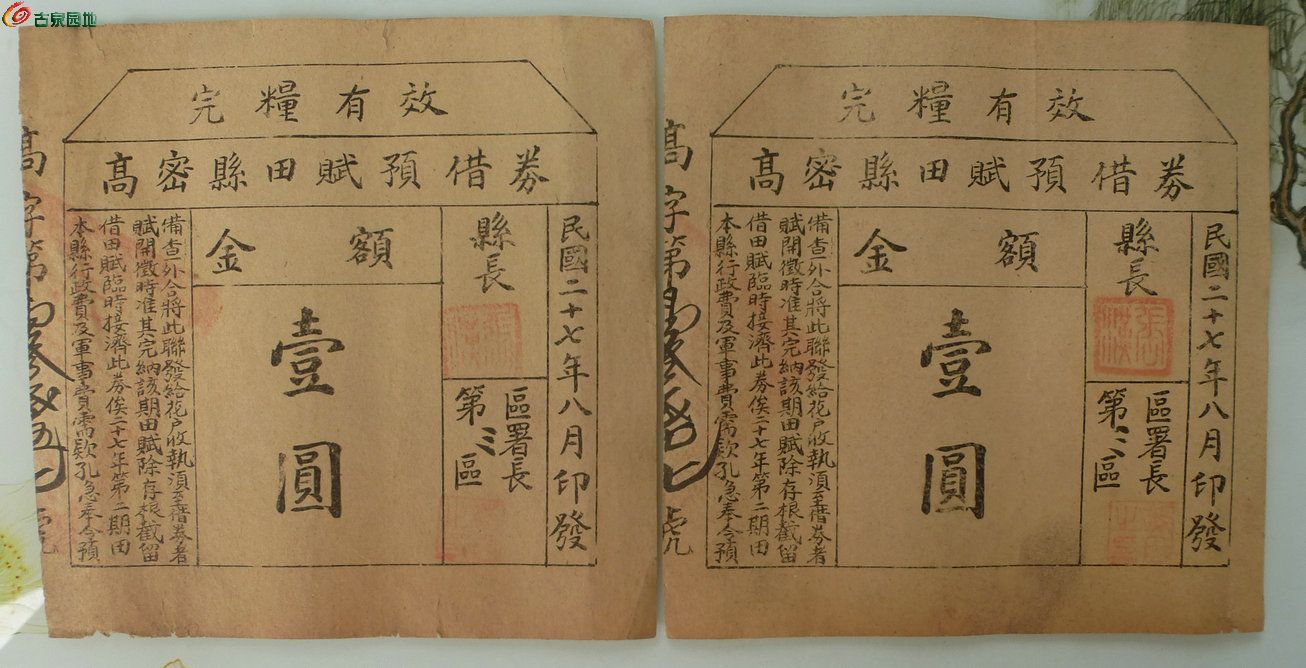 古泉园地
完糧有效
高密縣田賦預借券
本縣行政費及軍事費需欵孔急奉令預
借田賦臨時接濟此券俟二十七年第二期田
賦開徵時准其完納該期田賦除存根截留
備查外合將此聯發給花戶收執須至借券者
金額
壹圓
縣長
第三區
區署長
民國二十七年八月印發
高字第
號
完糧有效
高密縣田賦預借券
本縣行政費及軍事費需欵孔急奉令預
借田賦臨時接濟此券俟二十七年第二期田
賦開徵時准其完納該期田賦除存根截留
備查外合將此聯發給花戶收執須至借券者
金額
壹圓
縣長
第三區
區署長
民國二十七年八月印發
高字第
號